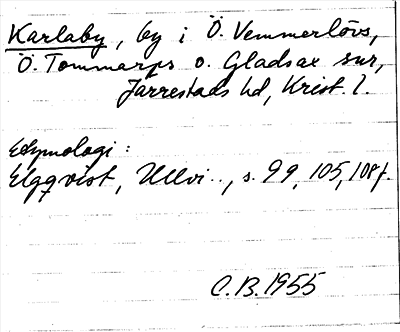 Karlaby, by i Ö. Vemmerlövs,
Ö. Tommarps o. Gladsax snr,
Järrestads hd, Krist. l.
Etymologi:
Elgqvist, Ullvi.., s. 99, 105, 108f.
C.B. 1955